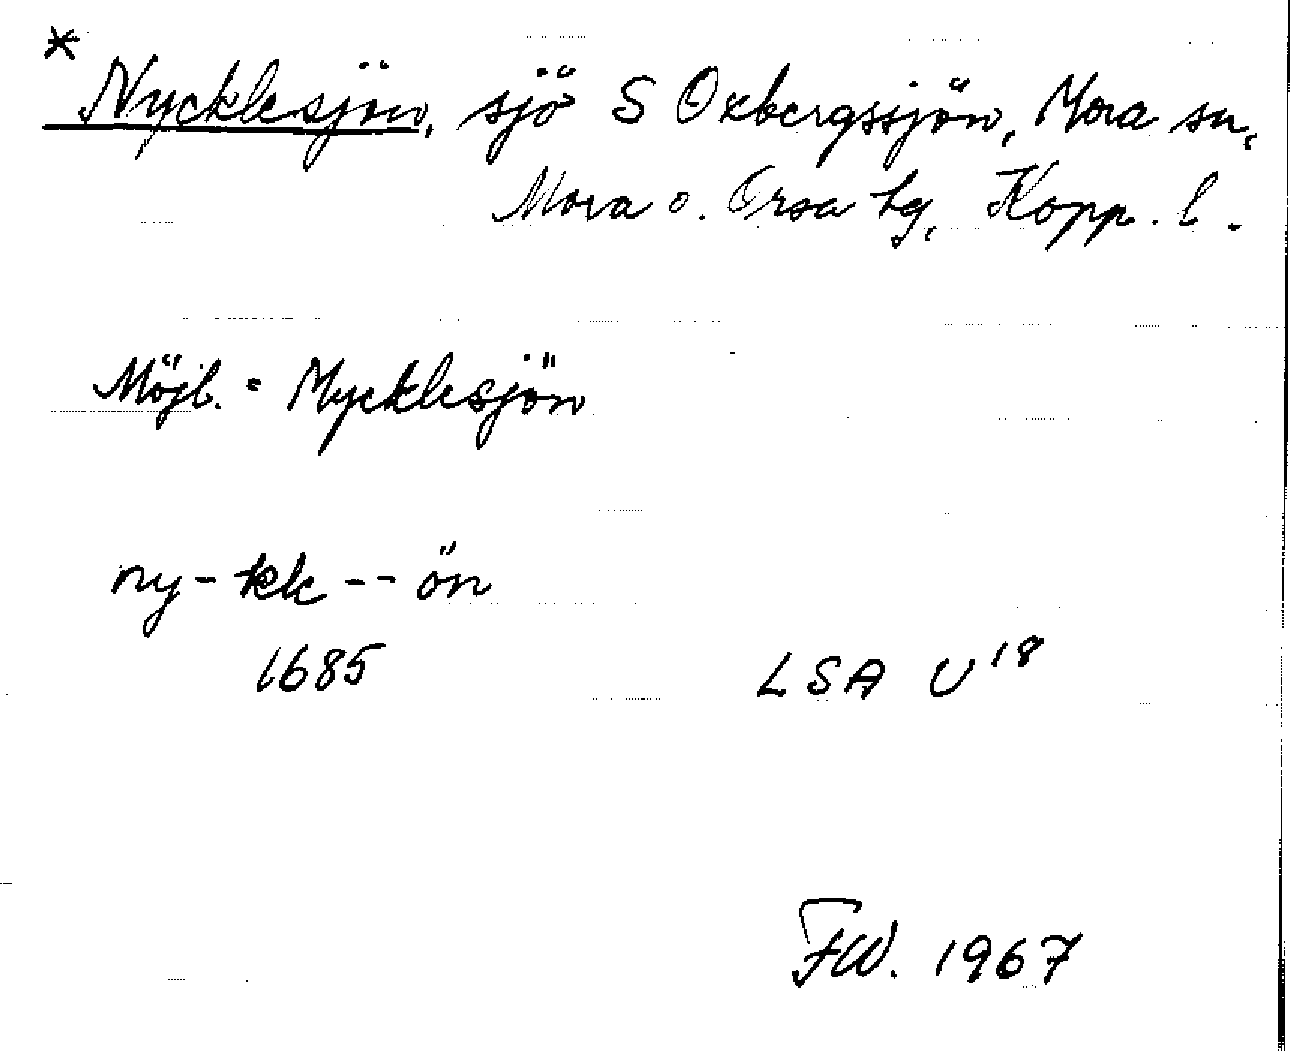 * Nycklesjön, sjö S Oxbergssjön, Mora sn,
Mora o. Orsa tg, Kopp. l.
Möjl. = Mycklesjön
ny-kk--ön
1685 LSA U18
FW. 1967